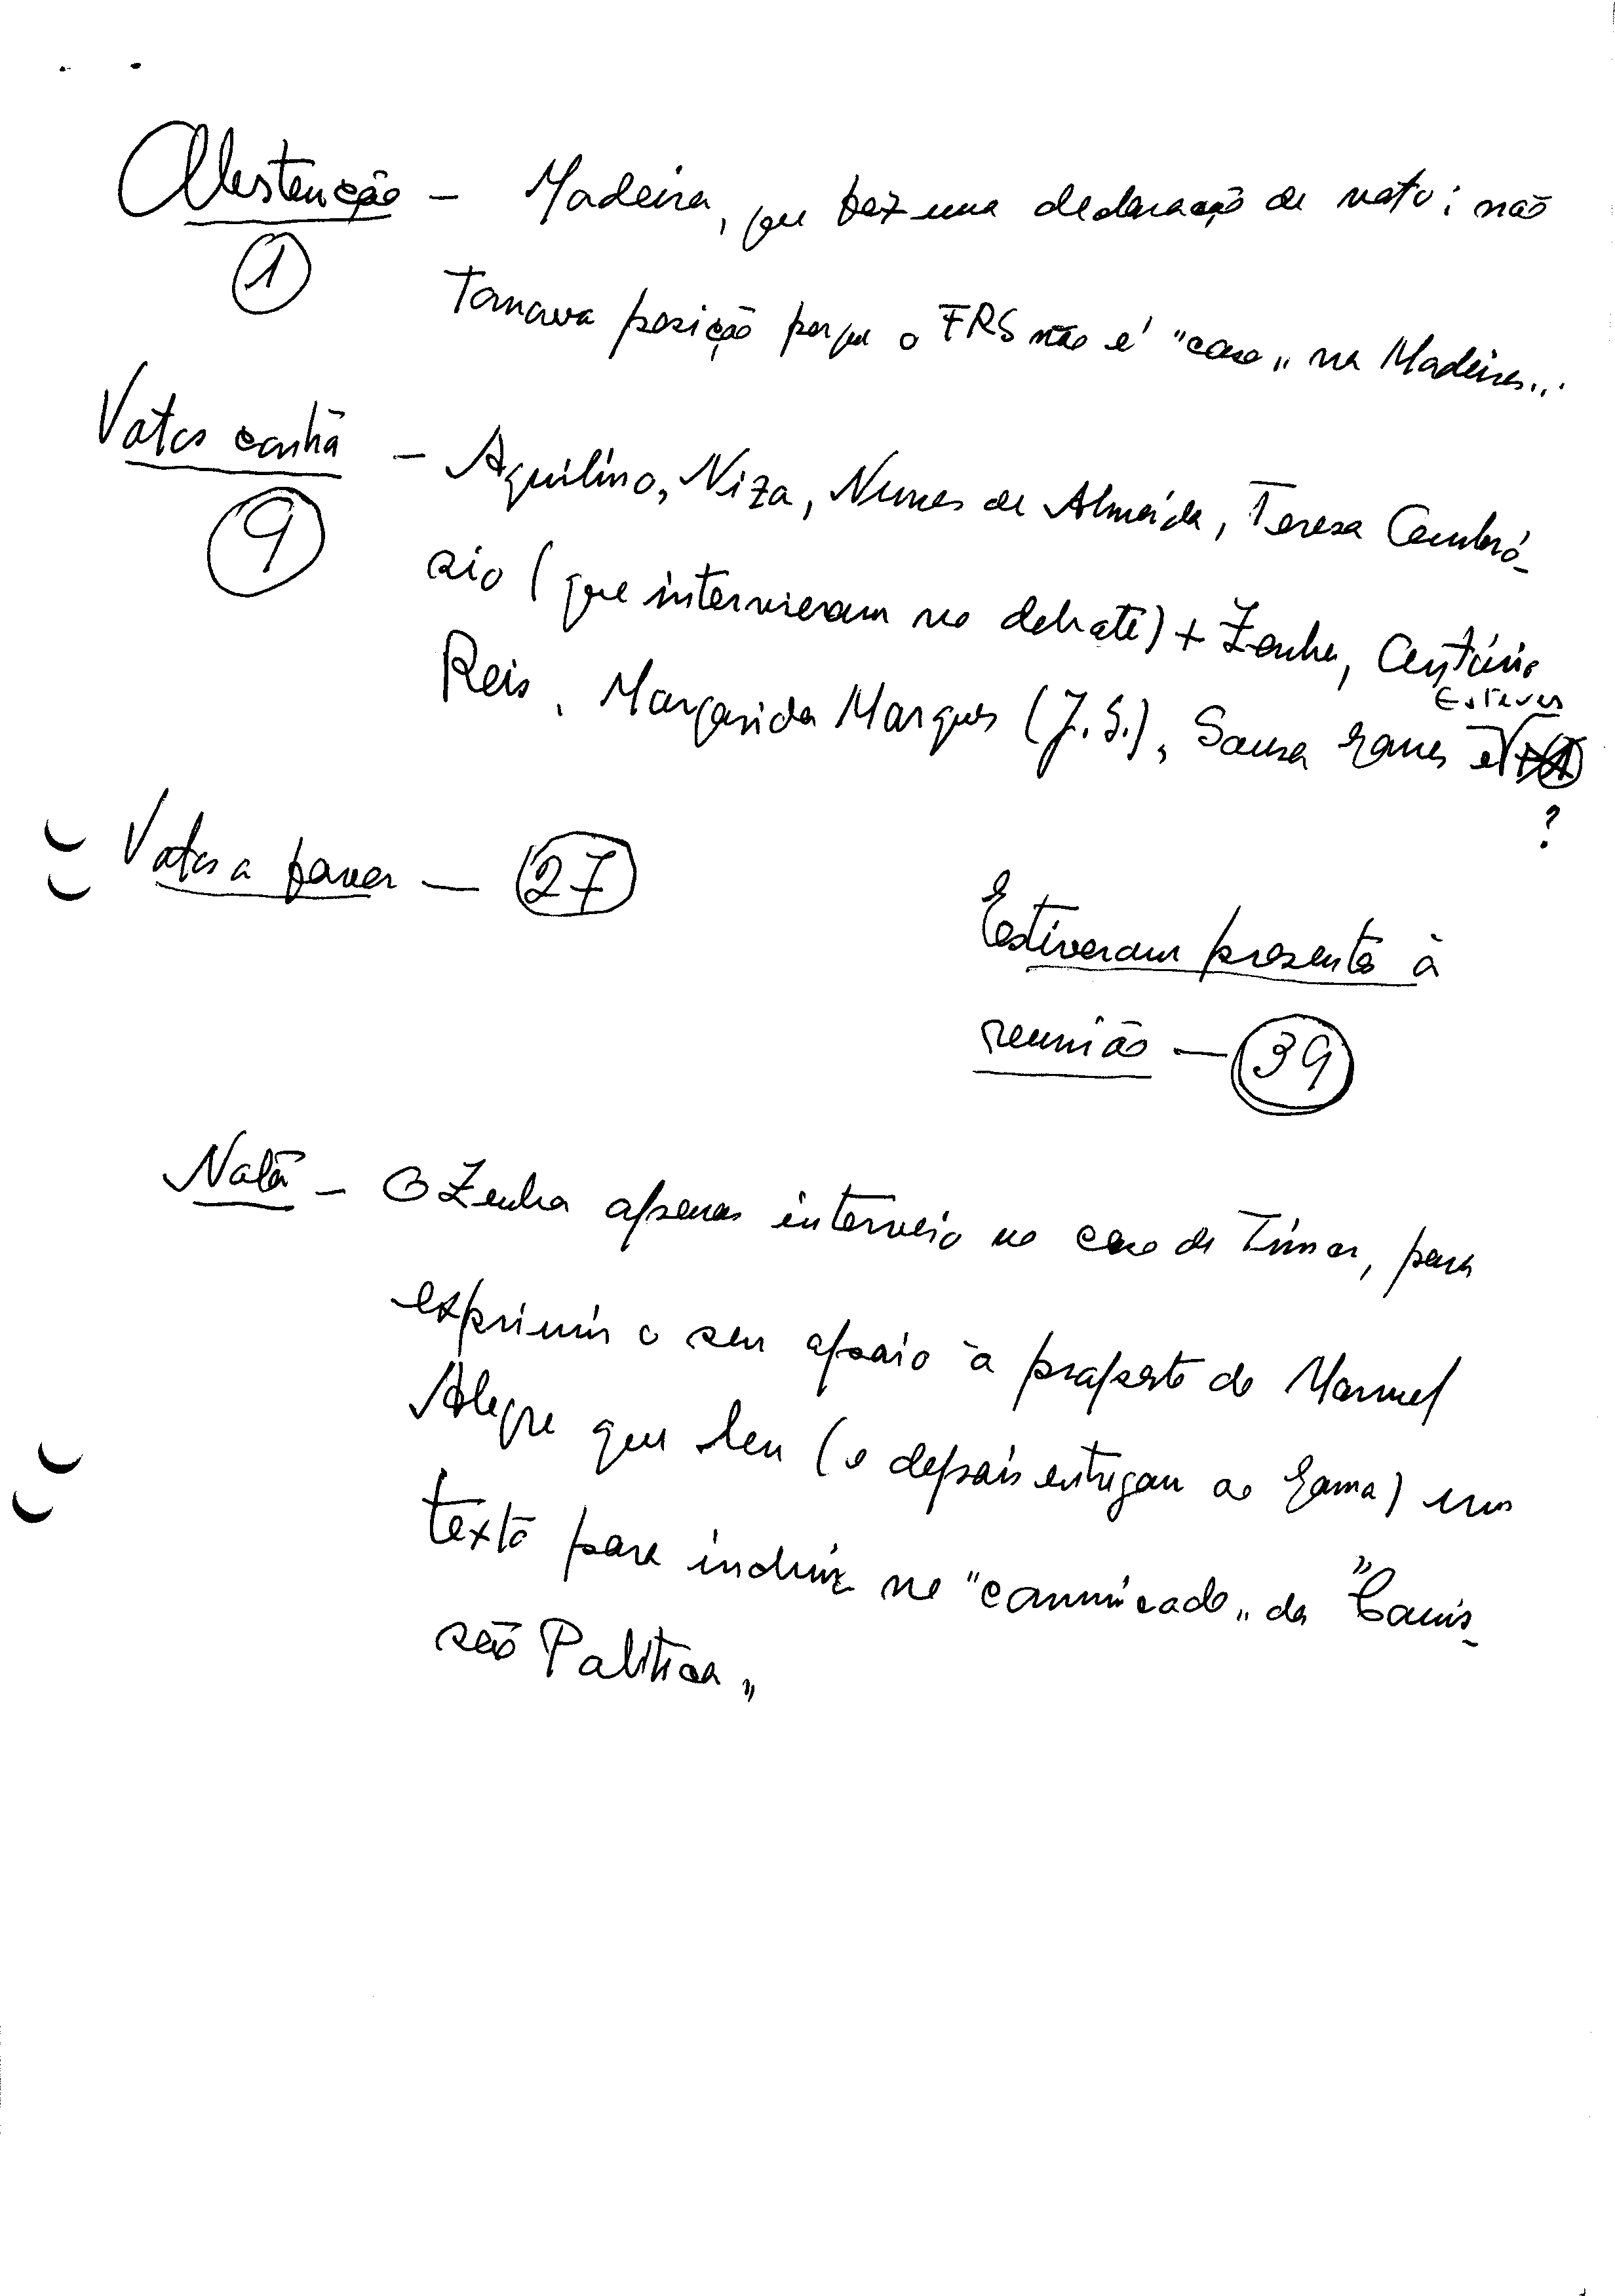 Abstenção — Madeira, que fez uma declaração de voto: não
①
tomava posição porque o FRS não é "caso" na Madeira...
Votos contra — Aquilino, Niza, Nunes de Almeida, Teresa Ambró-
⑨
sio (que intervieram no debate) + Zenha, António
Reis, Margarida Marques (J.S.), Sousa Gomes e Esteves
?
Votos a favor — 27
Estiveram presentes à
reunião — 39
Nota — O Zenha apenas interveio no caso de Timor, para
exprimir o seu apoio à proposta do Manuel
Alegre que leu (e depois entregou ao Gama) um
texto para incluir no "comunicado" da "Comis-
são Política"